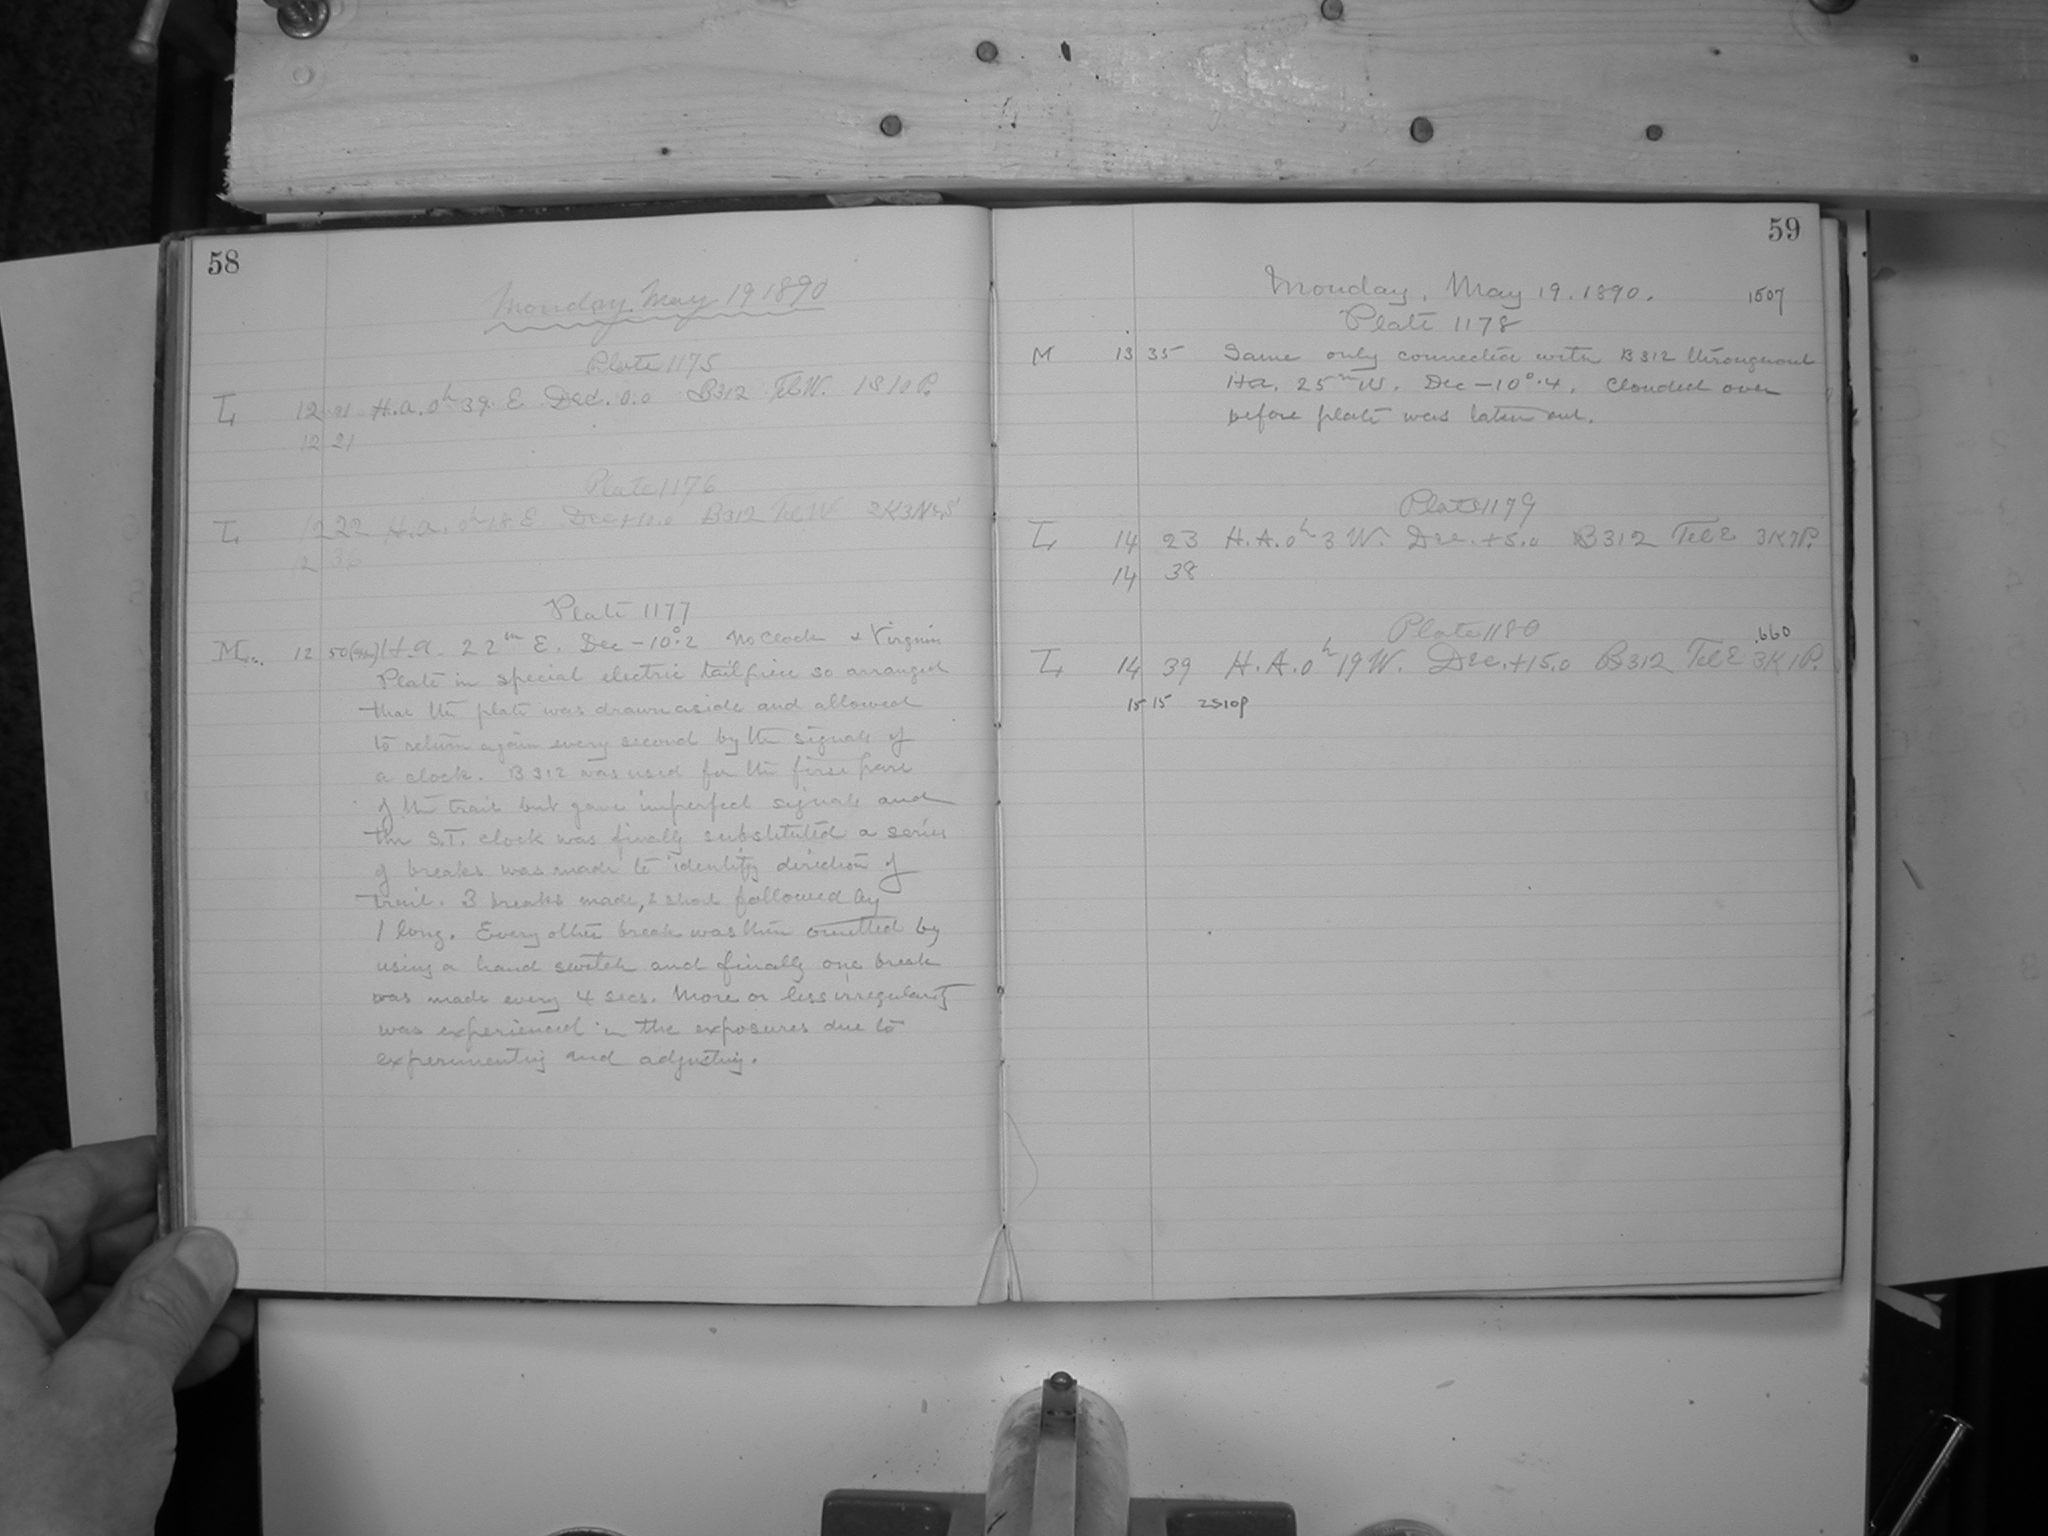 58
Monday May 19 1890
Plate 1175
L 12 21 H.A. 0h 39 E Dec. 0.0 B312 Tel W. 1S10P.
12 21
Plate 1176
L 12 22 H.A. 0h 18 E Dec +10.0 B312 Tel W
12 36
Plate 1177
M 12 50 H.A. 22m E. Dec -10°.2 No Clock α Virginis
Plate in special electric tailpiece so arranged
that the plate was drawn aside and allowed
to return again every second by the signals of
a clock. B 312 was used for the first part
of the trail but gave imperfect signals and
the S.T. clock was finally substituted a series
of breaks was made to identify direction of
trail. 3 breaks made, 2 short followed by
1 long. Every other break was then omitted by
using a hand switch and finally one break
was made every 4 secs. More or less irregularity
was experienced in the exposures due to
experimenting and adjusting.
59
Monday, May 19. 1890.
1507
Plate 1178
M 13 35 Same only connected with B 312 throughout
H.A. 25m W. Dec -10°.4. Clouded over
before plate was taken out.
Plate 1179
L 14 23 H.A. 0h 3 W. Dec. +5.0 B312 Tel E 3K7P.
14 38
Plate 1180
.660
L 14 39 H.A. 0h 19 W. Dec. +15.0 B312 Tel E 3K1P.
15 15 2S10P